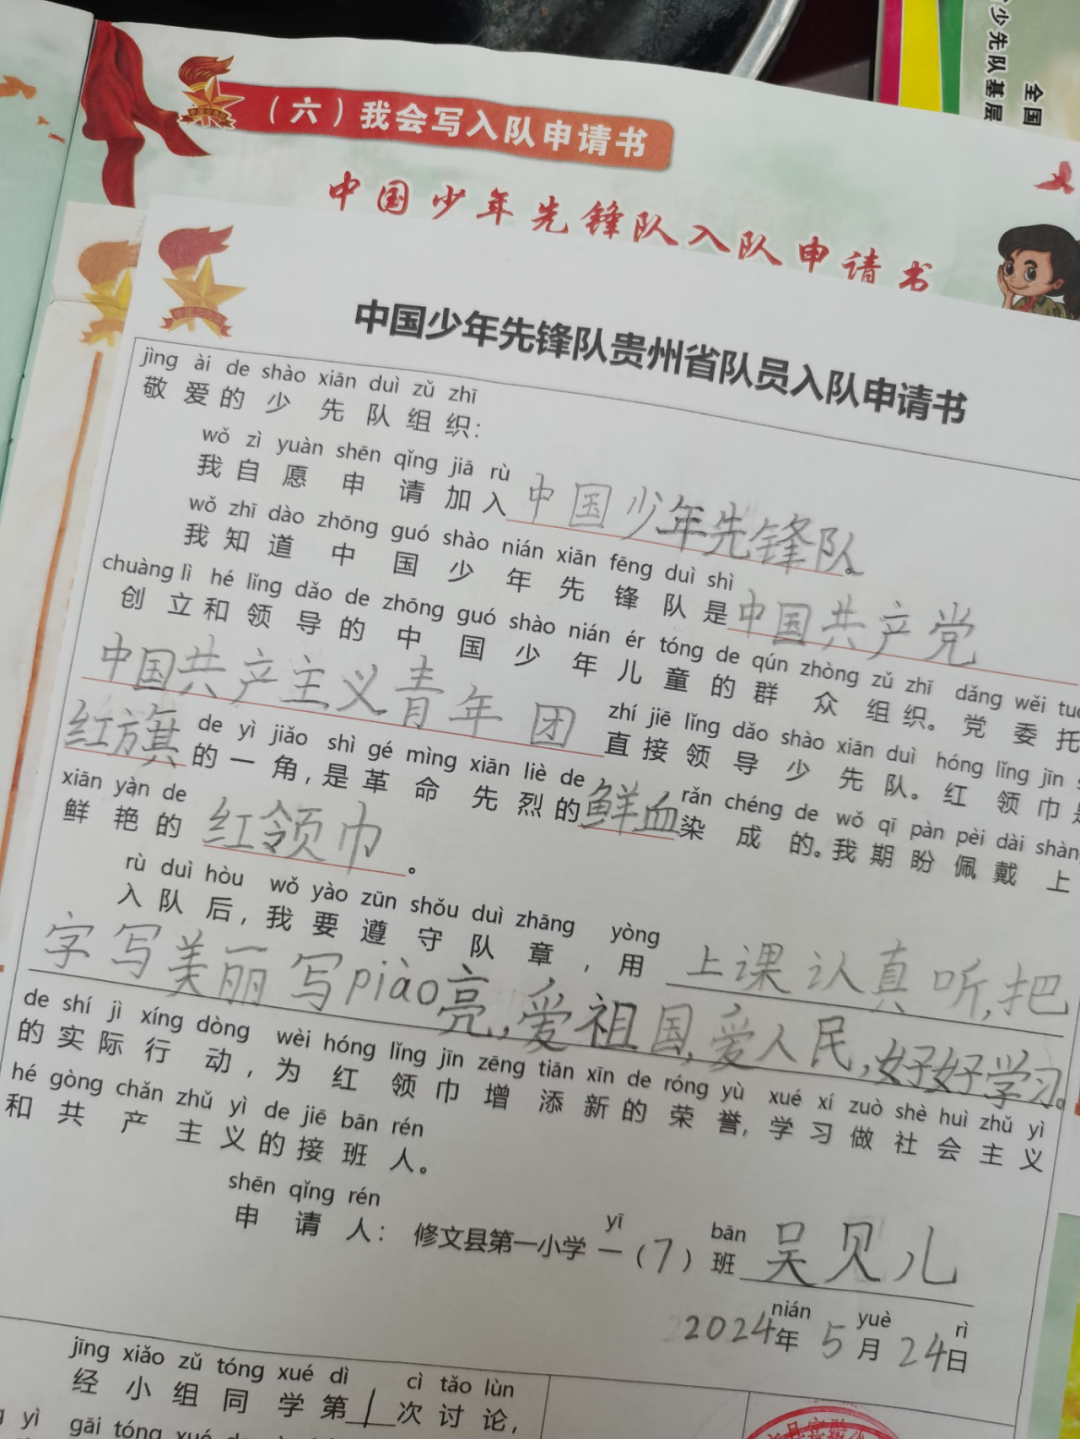 全国
少先队基层
（六）我会写入队申请书
中国少年先锋队入队申请书
中国少年先锋队贵州省队员入队申请书
jìng ài de shào xiān duì zǔ zhī
敬爱的少先队组织：
wǒ zì yuàn shēn qǐng jiā rù
我自愿申请加入中国少年先锋队。
wǒ zhī dào zhōng guó shào nián xiān fēng duì shì
我知道中国少年先锋队是中国共产党
chuàng lì hé lǐng dǎo de zhōng guó shào nián ér tóng de qún zhòng zǔ zhī dǎng wěi tuō
创立和领导的中国少年儿童的群众组织。党委托
zhí jiē lǐng dǎo shào xiān duì hóng lǐng jīn
中国共产主义青年团直接领导少先队。红领巾是
de yì jiǎo shì gé mìng xiān liè de rǎn chéng de wǒ qī pàn pèi dài shàng
红旗的一角，是革命先烈的鲜血染成的。我期盼佩戴上
xiān yàn de
鲜艳的红领巾。
rù duì hòu wǒ yào zūn shǒu duì zhāng yòng
入队后，我要遵守队章，用上课认真听，把
字写美丽写piào亮，爱祖国，爱人民，好好学习。
de shí jì xíng dòng wèi hóng lǐng jīn zēng tiān xīn de róng yù xué xí zuò shè huì zhǔ yì
的实际行动，为红领巾增添新的荣誉，学习做社会主义
hé gòng chǎn zhǔ yì de jiē bān rén
和共产主义的接班人。
shēn qǐng rén yī bān
申请人：修文县第一小学一（7）班吴贝儿
nián yuè rì
2024年5月24日
jīng xiǎo zǔ tóng xué dì cì tǎo lùn
经小组同学第1次讨论，
yì gāi tóng xué